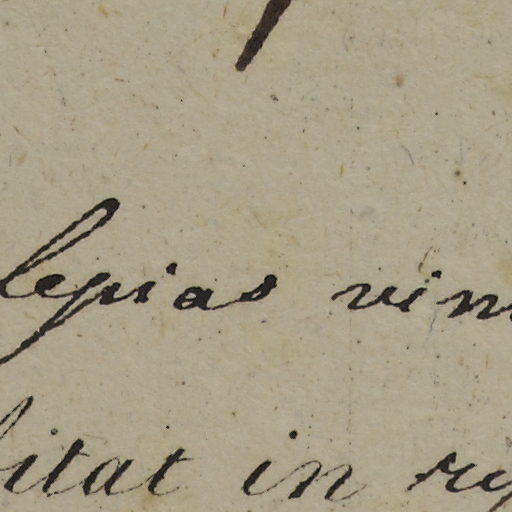 lepias vin
itat in ry